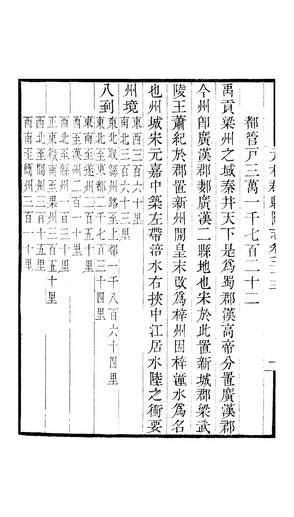 都管戶三萬一千七百二十二
禹貢梁州之域秦并天下是爲蜀郡漢高帝分置廣漢郡
今州即廣漢郡郪廣漢二縣地也宋於此置新城郡梁武
陵王蕭紀於郡置新州開皇末改爲梓州因梓潼水爲名
也州城宋元嘉中築左帶涪水右挾中江居水陸之衝要
州境
東西三百六十里
南北三百三十里
八到
東北取緜州路至上都一千八百六十四里
東北至東都二千六百七十四里
東南至遂州二百一十里
正西至漢州二百一十里
西北至緜州一百六十里
正東微南至果州三百五里
東北至閬州三百二十里
西南至簡州三百一十里